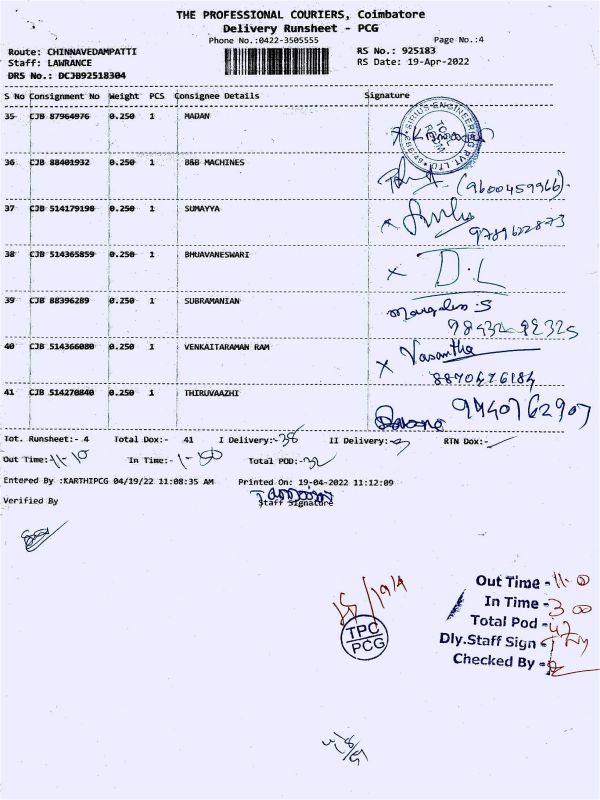 THE PROFESSIONAL COURIERS, Coimbatore
Delivery Runsheet - PCG
Phone No.:0422-3505555 Page No.:4
Route: CHINNAVEDAMPATTI RS No.: 925183
Staff: LAWRANCE RS Date: 19-Apr-2022
DRS No.: DCJB92518304
S No Consignment No Weight PCS Consignee Details Signature
35 CJB 87964976 0.250 1 MADAN
SIRIUS ENGINEERING PVT. LTD
36 CJB 88401932 0.250 1 B&B MACHINES
(9600459966).
37 CJB 514179190 0.250 1 SUMAYYA
9789622873
38 CJB 514365859 0.250 1 BHUAVANESWARI
x D.L
39 CJB 88396289 0.250 1 SUBRAMANIAN
40 CJB 514366080 0.250 1 VENKAITARAMAN RAM
x Vasantha
8870476184
41 CJB 514270840 0.250 1 THIRUVAAZHI
9940762907
Tot. Runsheet:- 4 Total Dox:- 41 I Delivery:-38 II Delivery:-3 RTN Dox:-
Out Time:-11-10 In Time:-1-50 Total POD:-32
Entered By :KARTHIPCG 04/19/22 11:08:35 AM Printed On: 19-04-2022 11:12:09
Verified By Staff Signature
Out Time -11-0
In Time -3 00
TPC Total Pod -
PCG Dly.Staff Sign -
Checked By -